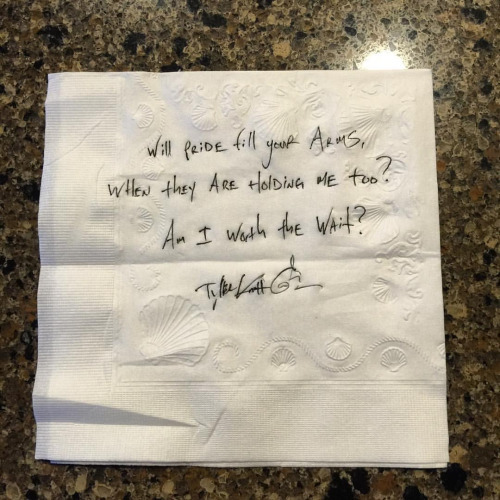 Will PRiDE fill your ARMS,
WHEN they ARE HolDiNG ME too?
Am I Worth the Wait?
Tyler Knott G